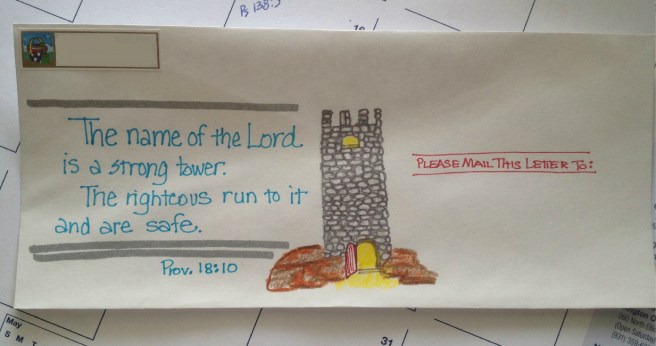 Ps 138:3
The name of the Lord
is a strong tower.
The righteous run to it
and are safe.
Prov. 18:10
PLEASE MAIL THIS LETTER TO:
May
S M T
31